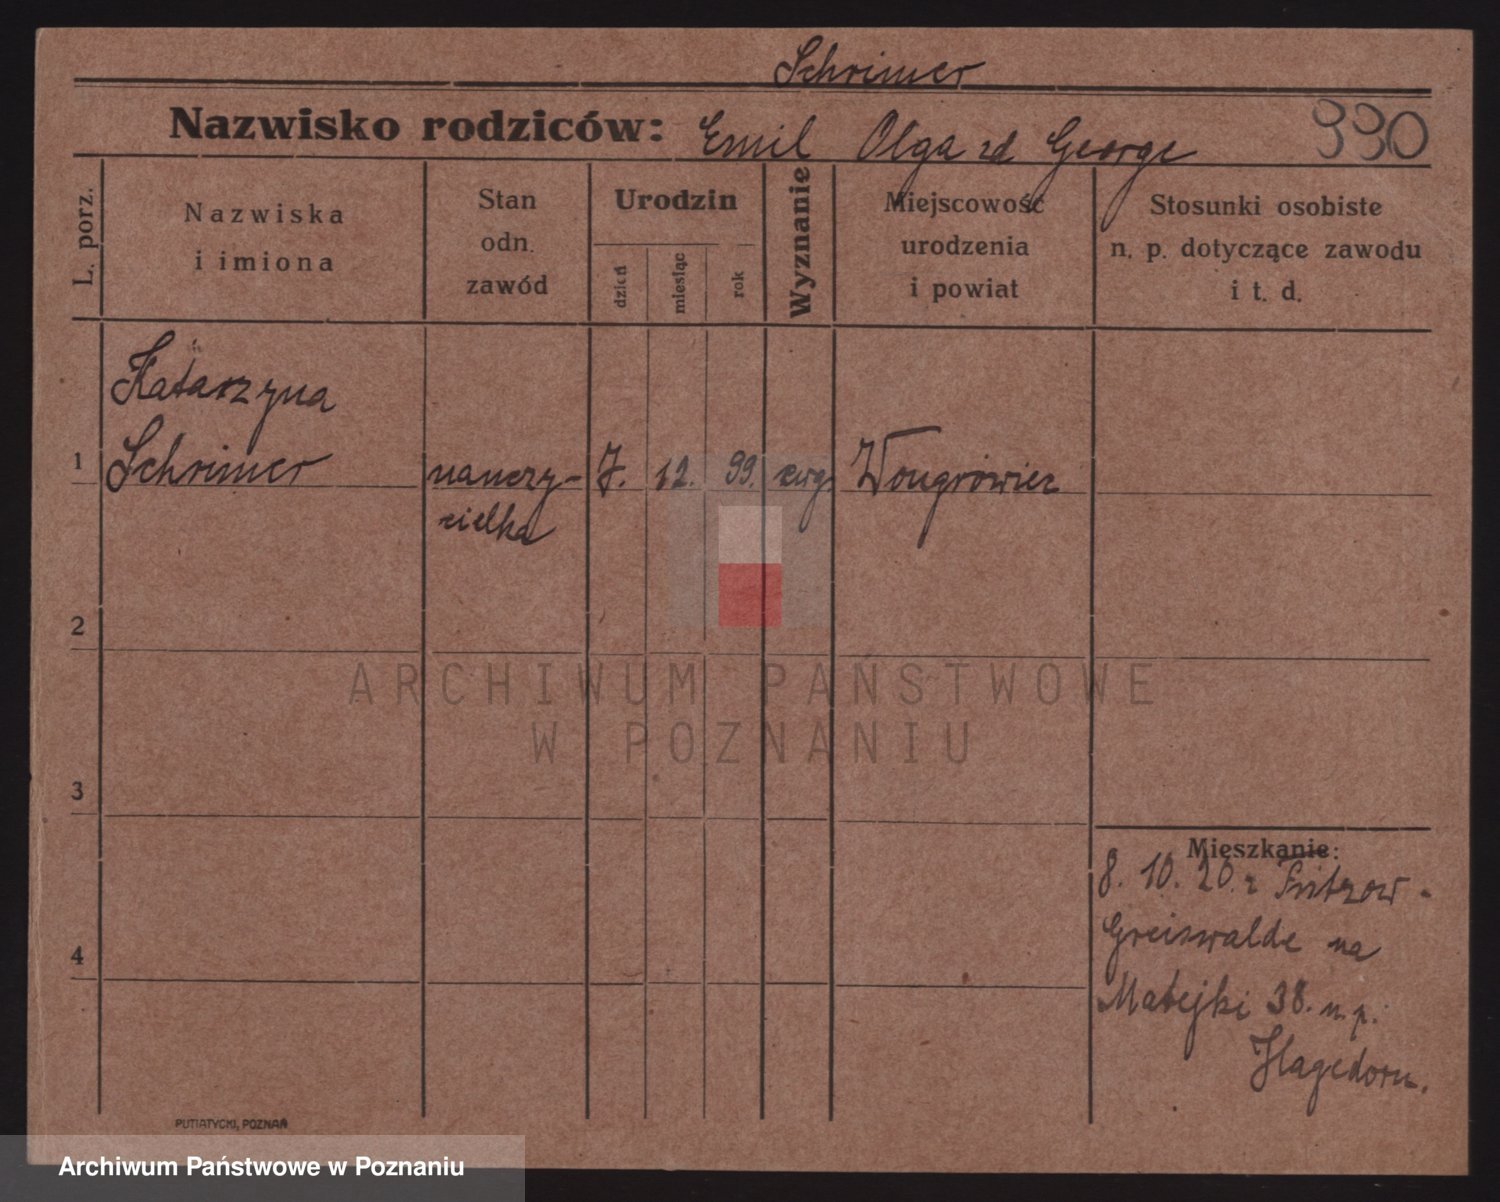 Schrimer
Nazwisko rodziców: Emil Olga zd George 990
L. porz.
Nazwiska
i imiona
Stan
odn.
zawód
Urodzin
dzień
miesiąc
rok
Wyznanie
Miejscowość
urodzenia
i powiat
Stosunki osobiste
n. p. dotyczące zawodu
i t. d.
Katarzyna
1 Schrimer nauczy- 7. 12. 99. ewg. Wongrówiec
cielka
2
ARCHIWUM PAŃSTWOWE
W POZNANIU
3
Mieszkanie:
8. 10. 20. z
4
Greiswalde na
Matejki 38. u. p.
Hagedorn.
PUTIATYCKI, POZNAŃ
Archiwum Państwowe w Poznaniu